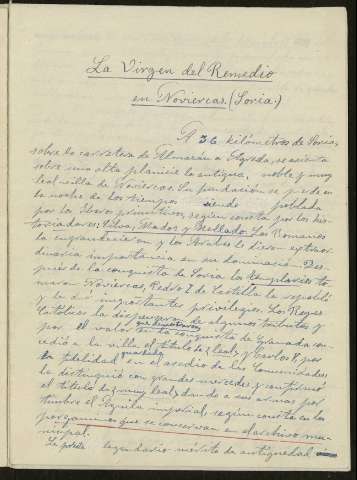 La Virgen del Remedio
en Noviercas. (Soria.)
A 36 kilómetros de Soria,
sobre la carretera de Almazán a Agreda, se asienta
sobre una alta planicie la antigua, noble y muy
leal villa de Noviercas. Su fundación se pierde en
la noche de los tiempos siendo poblada
por los Iberos primitivos, según consta por los his-
toriadores, Silva, Mador y Mellado. Los Romanos
la engrandecieron y los Arabes le dieron extraor-
dinaria importancia en su dominación. Des-
pués de la conquista de Soria la Templarios to-
maron Noviercas, Pedro I de Castilla la repobló
y le dió importantes privilegios. Los Reyes
Católicos la dispensaron de algunos tributos y
por el valor que demostraron en la conquista de Granada con-
cedió a la villa el título de leal y Carlos I, por
la fidelidad guardada en el asedio de las Comunidades
la distinguió con grandes mercedes y confirmó
el título de muy leal, dando a sus armas por
timbre el Aguila imperial, según consta en los
pergaminos que se conservan en el archivo mu-
nicipal.
legendario mérito de antigüedad